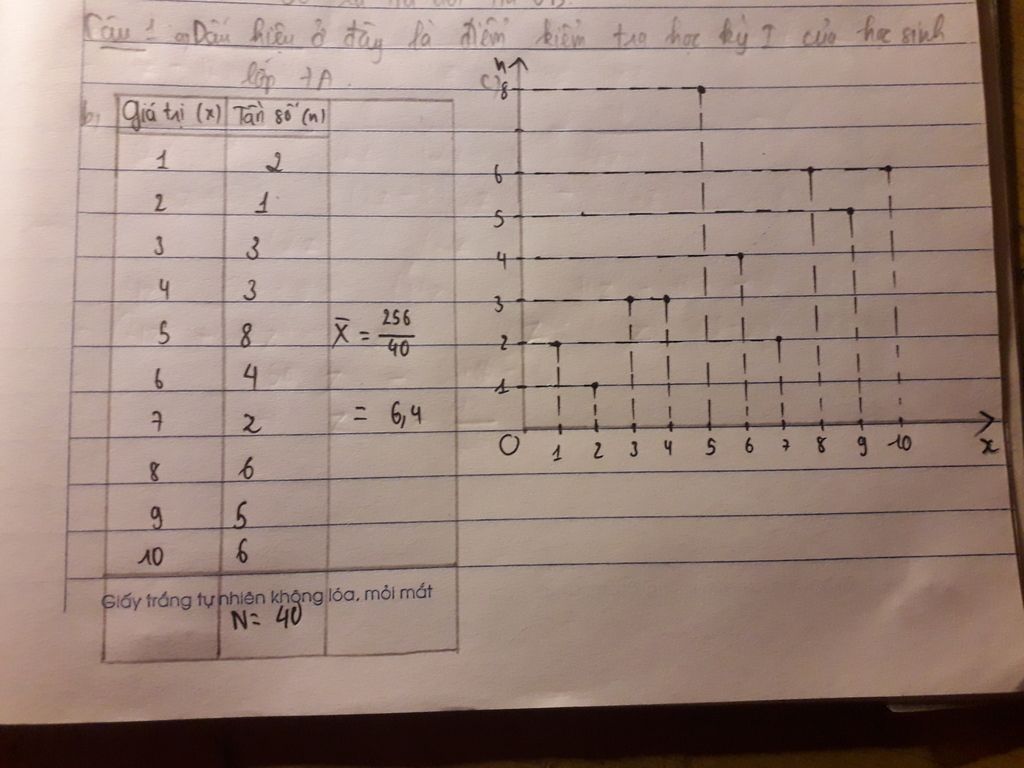 Câu 1 a, Dấu hiệu ở đây là điểm kiểm tra học kỳ I của học sinh
lớp 7A.
b, Giá trị (x) Tần số (n)
1 2
2 1
3 3
4 3
5 8 X̄ = 256/40
6 4
7 2 = 6,4
8 6
9 5
10 6
Giấy trắng tự nhiên không lóa, mỏi mắt
N = 40
n
c)
8
6
5
4
3
2
1
O 1 2 3 4 5 6 7 8 9 10
x